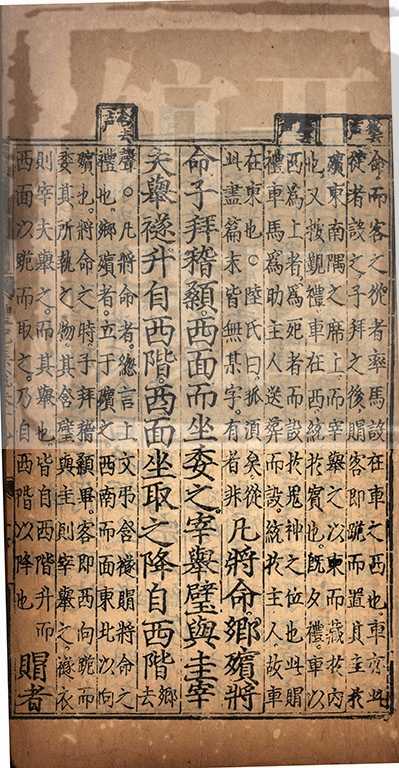 命而客之從者率馬設在車之西也車亦此
從者設之子拜之後賵客即跪而置其圭於
殯東南隅之席上而宰舉之以東而藏於內
也又按覲禮車在西統於賓也旣夕禮車以
西爲上者爲死者而設於鬼神之位也此賵
禮車馬爲助主人送葬而設統於主人故車
在東也○陸氏曰孤須矣從
此盡篇末皆無某字有者非
凡將命鄉殯將
命子拜稽顙西面而坐委之宰舉璧與圭宰
夫舉襚升自西階西面坐取之降自西階鄉去
聲○凡將命者總言上文弔含襚賵將命之
禮也鄉殯者立于殯之西南而面東北以向
殯也將命之時子拜稽顙畢客即西向跪而
委其所執之物其含璧與圭則宰舉之襚衣
則宰夫舉之而其舉也皆自西階升而
西面以跪而取之乃自西階以降也
賵者